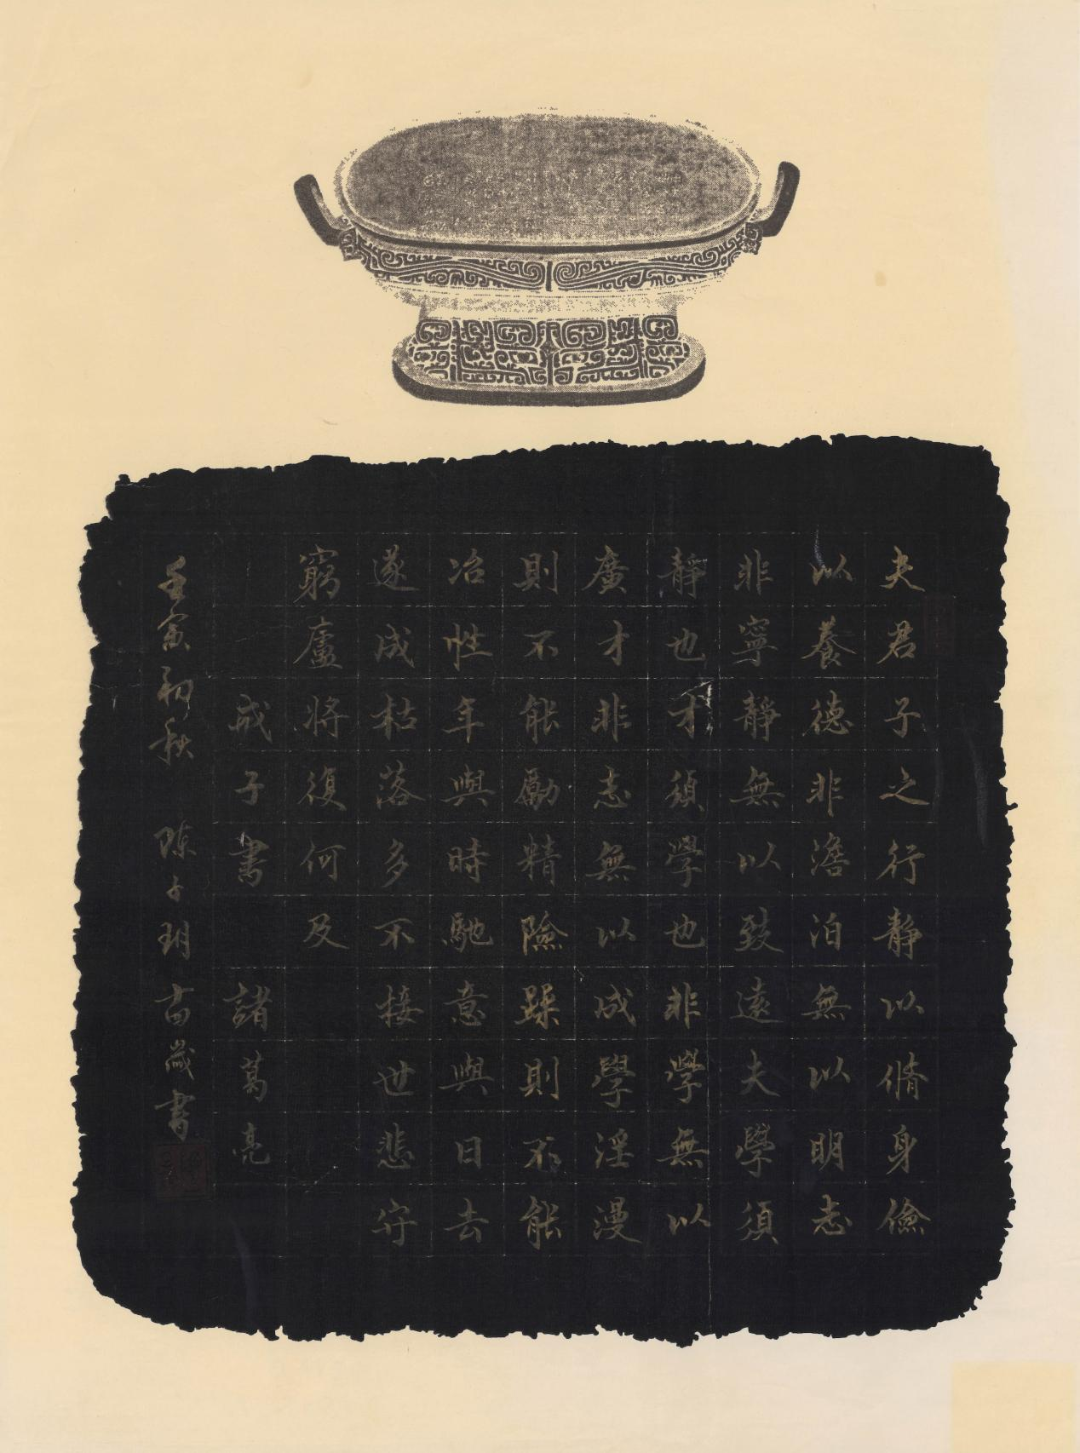 夫君子之行靜以脩身儉
以養德非澹泊無以明志
非寧靜無以致遠夫學須
靜也才須學也非學無以
廣才非志無以成學淫漫
則不能勵精險躁則不能
冶性年與時馳意與日去
遂成枯落多不接世悲守
窮廬將復何及
戒子書 諸葛亮
壬寅初秋 陳子玥 歲書